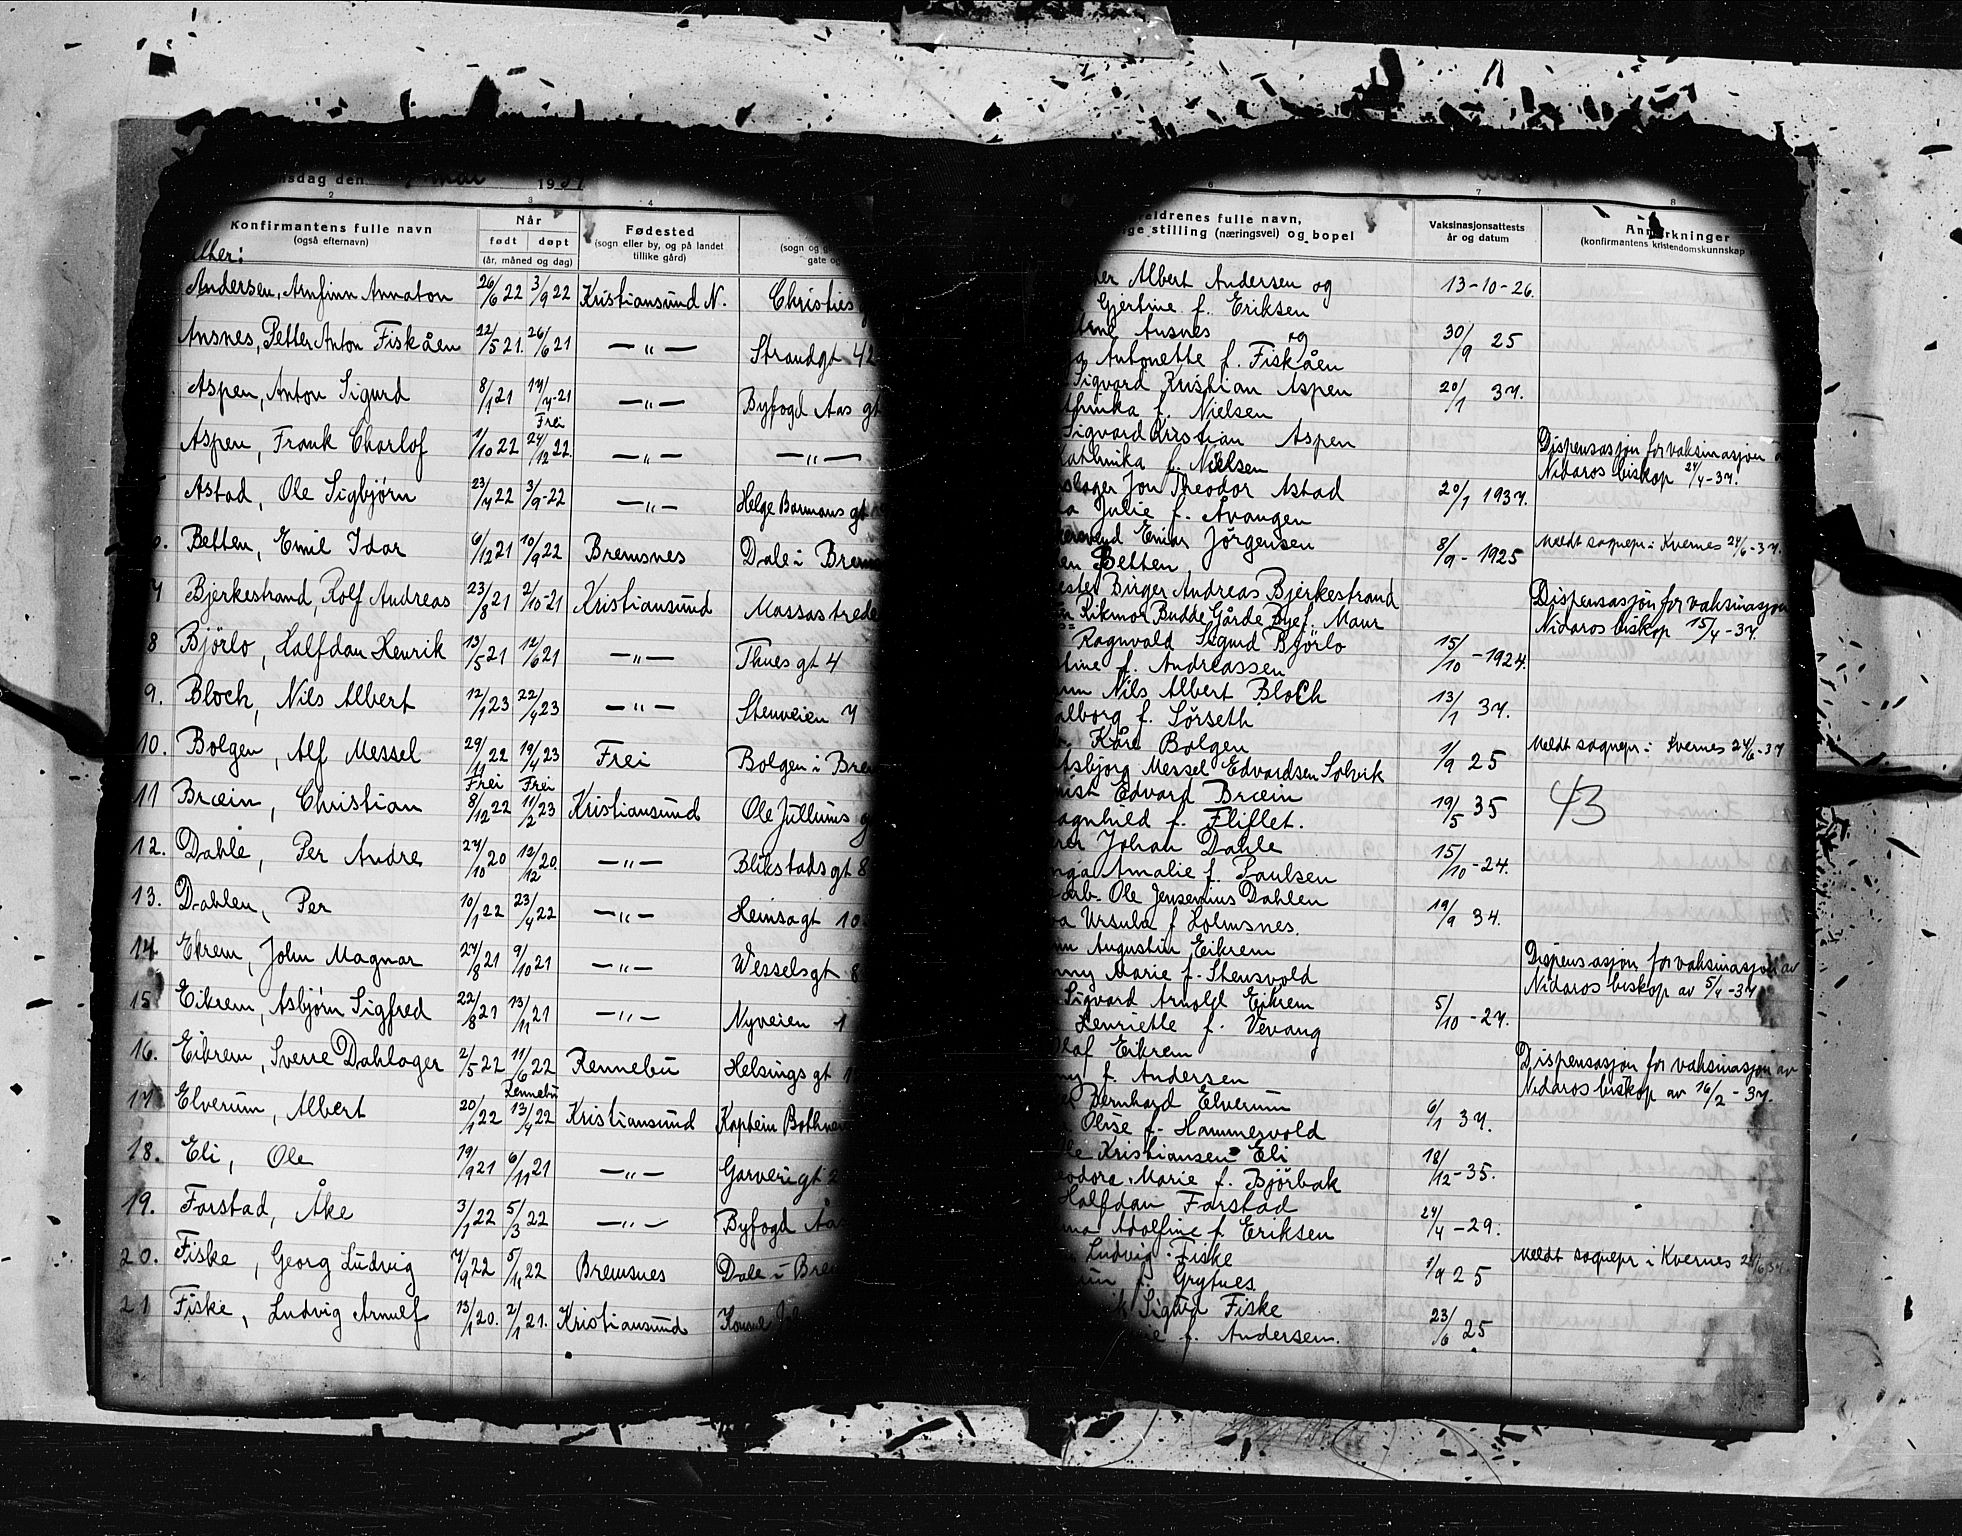 nsdag den mai 1937
2 3 4
Konfirmantens fulle navn
(også efternavn)
Når
født døpt
(år, måned og dag)
Fødested
(sogn eller by, og på landet
tillike gård)
(sogn og g
gate o
Andersen, Arnfinn Annaton 26/6 22 3/9 22 Kristiansund N. Christies
Ansnes, Petter Anton Fiskåen 22/5 21. 26/6 21 — „ — Strandgt 42
Aspen, Anton Sigurd 8/1 21 17/7-21 — „ — Byfogd Aas gt
Frei
Aspen, Frank Charlof 1/10 22 27/12 22. — „ — — „ —
Astad, Ole Sigbjørn 23/4 22 3/9-22 — „ — Helge Barmans gt
Betten, Emil Idar 6/12 21 10/9 22 Bremsnes Dale i Brem
7 Bjerkestrand, Rolf Andreas 23/8 21 2/10-21 Kristiansund Massastrede
8 Björlo, Halfdan Henrik 13/5 21 12/6 21 — „ — Thues gt 4
9. Bloch, Nils Albert 12/1 23 22/4 23 — „ — Stenveien 7
10. Bolgen, Alf Messel 29/11 22 19/4 23 Frei Bolgen i Bre
Frei Frei
11 Bræin, Christian 8/12 22 11/2 23 Kristiansund Ole Jullums g
12. Dahle, Per Andre 27/10 20 12/12 20. — „ — Blikstadsgt 8
13. Dahlen, Per 10/1 22 23/4 22 — „ — Heinsagt 10
14 Ekrem, John Magnar 27/8 21 9/10 21 — „ — Wesselsgt 8
15 Eikrem, Asbjørn Sigfred 22/8 21 13/11 21 — „ — Nyveien 1
16. Eikrem, Sverre Dahlager 2/5 22 11/6 22 Rennebu Helsings gt 1
Rennebu
17. Elverum, Albert 20/1 22 13/4 22 Kristiansund Kaptein Bothners
18. Eli, Ole 19/9 21 6/11 21 — „ — Garverigt 2
19. Farstad, Åke 3/1 22 5/3 22 — „ — Byfogd Aas
20. Fiske, Georg Ludvig 7/9 22 5/11 22 Bremsnes Dale i Bre
21 Fiske, Ludvig Arnulf 13/1 20. 2/1 21. Kristiansund Konsul
6 7 8
eldrenes fulle navn,
ge stilling (næringsvei) og bopel
Vaksinasjonsattests
år og datum
Anmerkninger
(konfirmantens kristendomskunnskap
Albert Andersen og 13-10-26.
Gjertine f. Eriksen
Ansnes og 30/9 25
Antonette f. Fiskåen
Sigvard Kristian Aspen 20/1 37.
f. Nielsen
Sigvard Kristian Aspen Dispensasjon for vaksinasjon
f. Nielsen Nidaros biskop 27/4-37.
Jon Theodor Astad 20/1 1937.
Julie f. Avangen
Einar Jørgensen 8/9-1925 Meldt sognepr. i Kvernes 24/6-37.
Betten
Birger Andreas Bjerkestrand Dispensasjon for vaksinasjon
Rikmor Budde Gårde Bye f. Maur Nidaros biskop 15/4-37.
Ragnvald Sigurd Björlo 15/10-1924.
f. Andreassen
Nils Albert Bloch 13/1 37.
f. Sörseth
Kåre Bolgen 1/9 25 Meldt sognepr. i Kvernes 24/6-37
Asbjørg Messel Edvardsen Solvik
Edvard Bræin 19/5 35 43
f. Fliflet.
Johan Dahle 15/10-24.
Amalie f. Paulsen
arb. Ole Jensenius Dahlen 19/9 34.
Ursula f. Holmsnes.
Augustin Eikrem Dispensasjon for vaksinasjon av
Marie f. Stensvold Nidaros biskop av 5/4-37
Sigvard Arnolf Eikrem 5/10-27.
Henriette f. Vevang
Olaf Eikrem Dispensasjon for vaksinasjon av
f. Andersen Nidaros biskop av 16/2-37.
Bernhard Elverum 6/1 37.
Olise f. Hammervold
Kristiansen Eli 18/12-35.
Marie f. Björbak
Halfdan Farstad 24/4-29.
Adolfine f. Eriksen
Ludvig Fiske 1/9 25 Meldt sognepr i Kvernes 24/6 37.
f. Grytnes
Sigurd Fiske 23/6 25
f. Andersen.